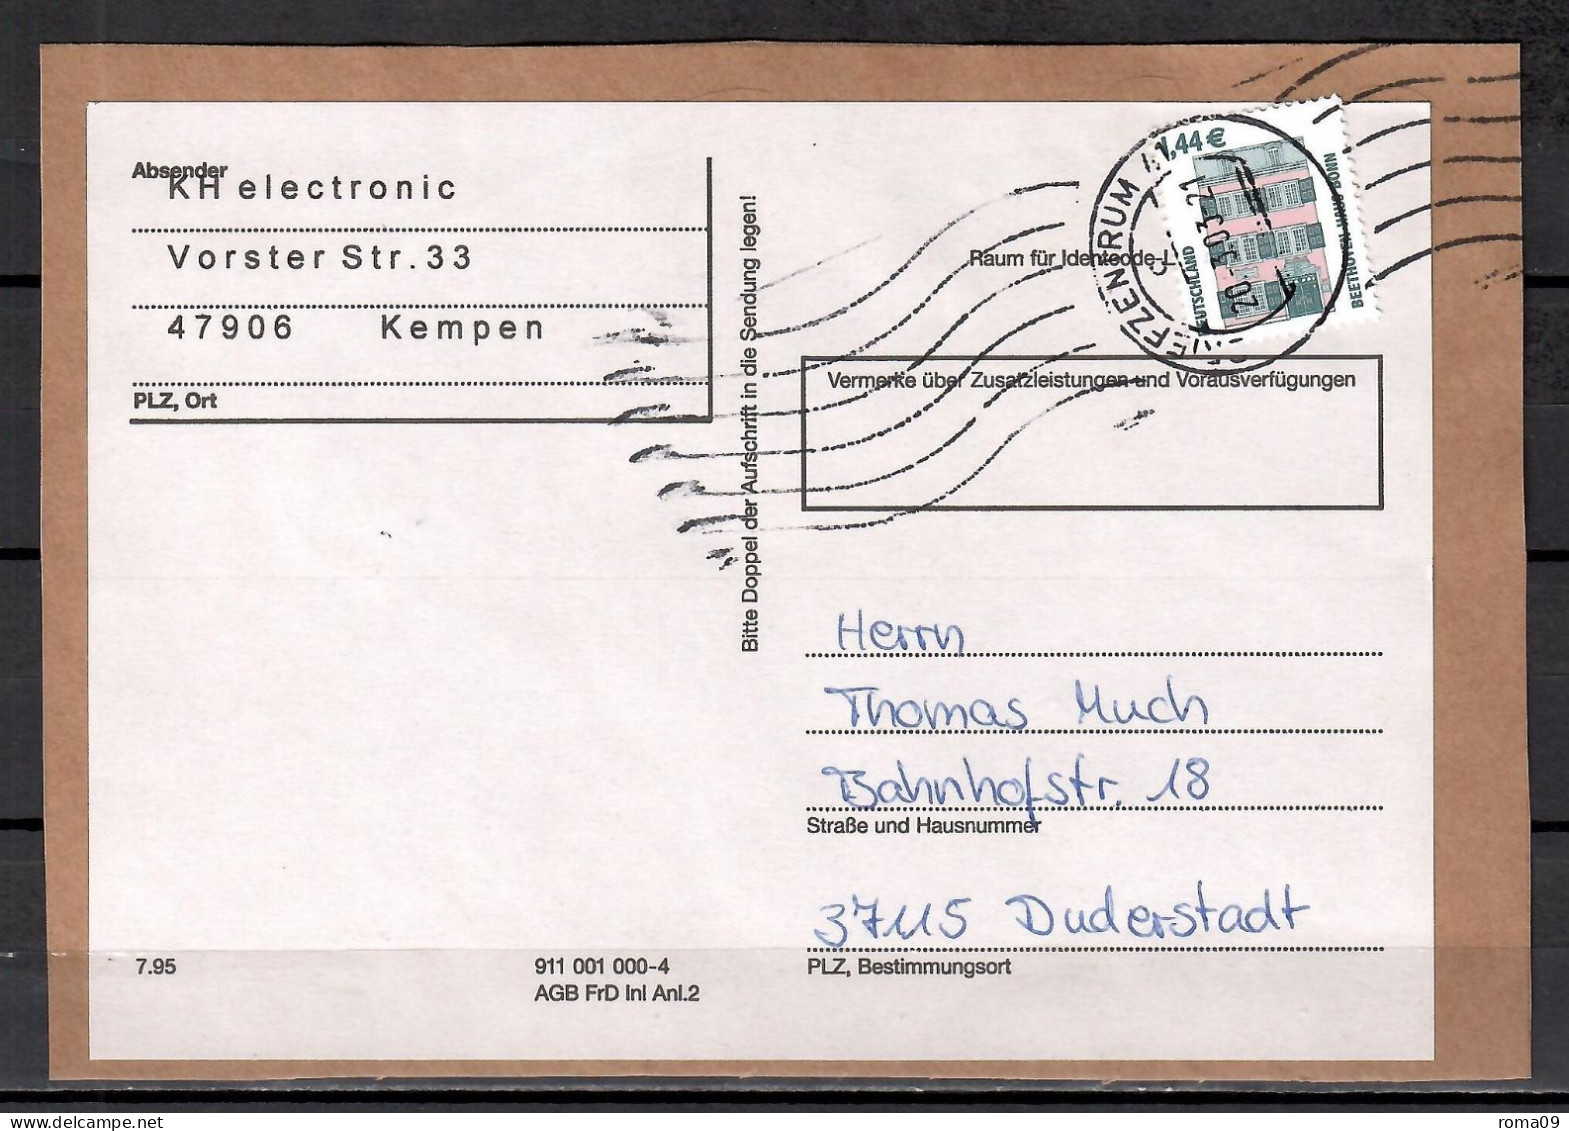 Absender
KH electronic
Vorster Str. 33
47906 Kempen
PLZ, Ort
Bitte Doppel der Aufschrift in die Sendung legen!
1,44€
DEUTSCHLAND
BEETHOVEN-HAUS BONN
BRIEFZENTRUM
20.-3.03.21
Raum für Identcode-L
Vermerke über Zusatzleistungen und Vorausverfügungen
Herrn
Thomas Much
Bahnhofstr. 18
Straße und Hausnummer
37115 Duderstadt
PLZ, Bestimmungsort
7.95
911 001 000-4
AGB FrD Inl Anl.2
roma09